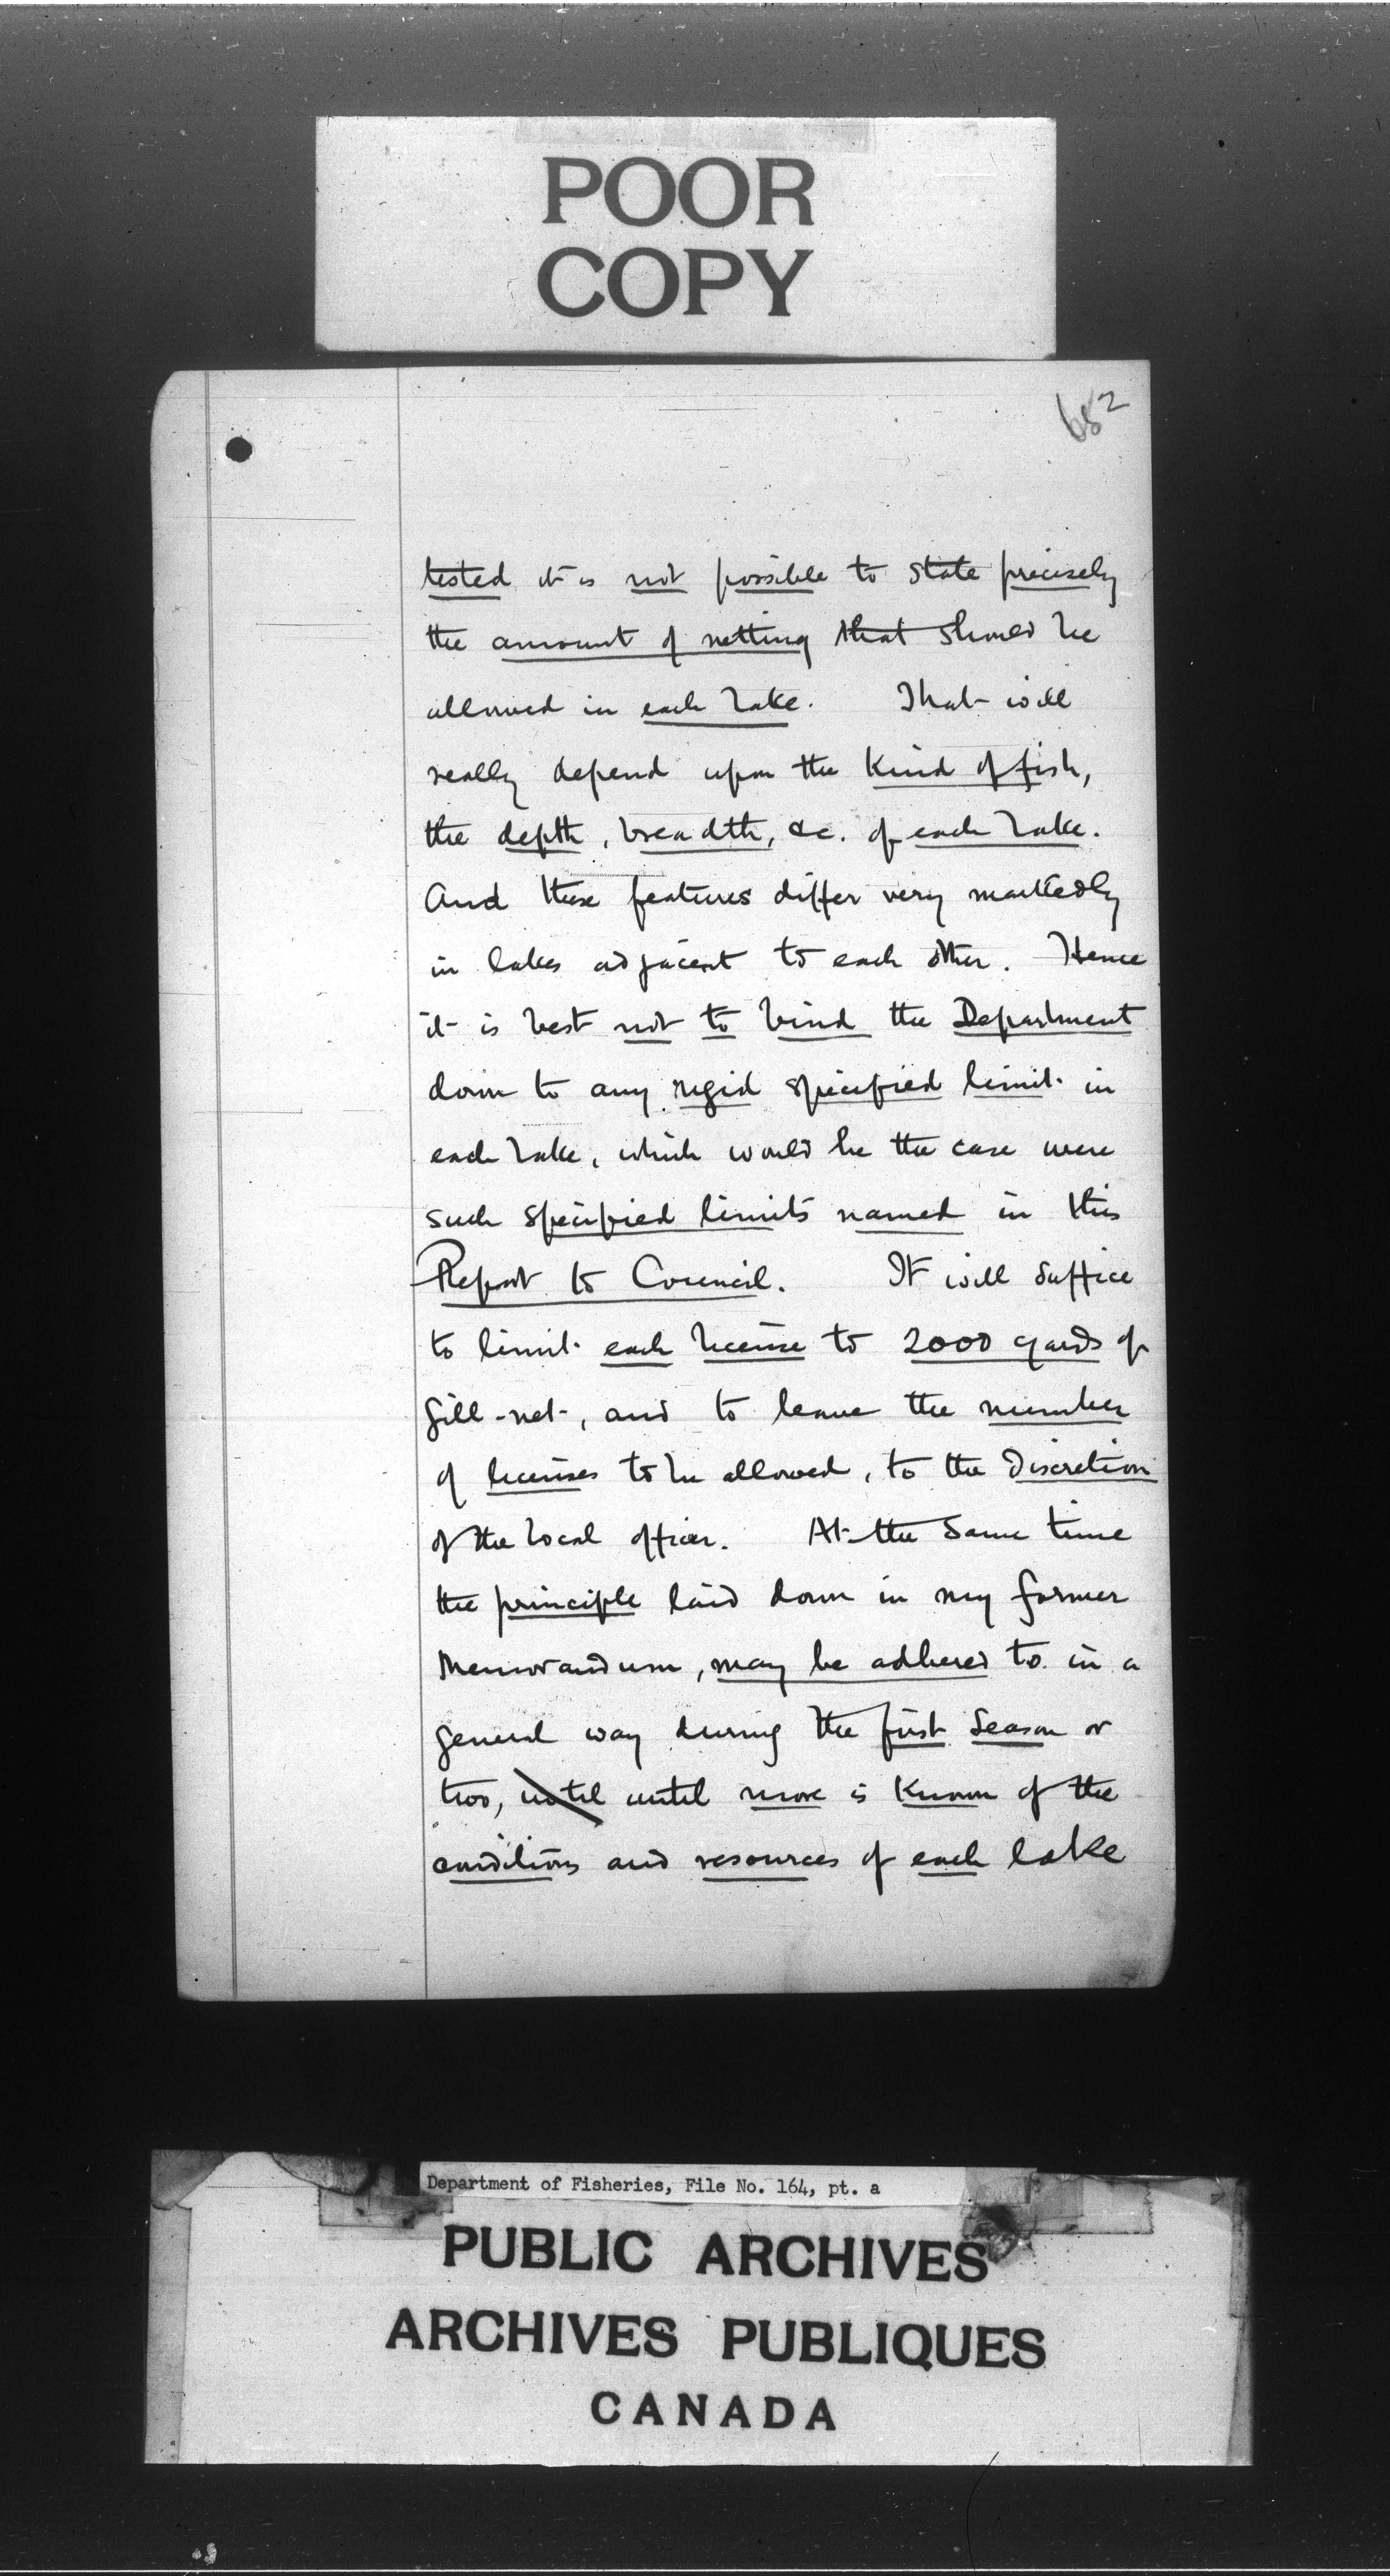 POOR
COPY
682
tested it is not possible to state precisely
the amount of netting that should be
allowed in each lake. That will
really depend upon the kind of fish,
the depth, breadth, &c. of each lake.
And these features differ very markedly
in lakes adjacent to each other. Hence
it is best not to bind the Department
down to any rigid specified limit in
each lake, which would be the case were
such specified limits named in this
Report to Council. It will suffice
to limit each license to 2000 yards of
gill-net, and to leave the number
of licenses to be allowed, to the discretion
of the local officer. At the same time
the principle laid down in my former
Memorandum, may be adhered to in a
general way during the first season or
two, until until more is known of the
conditions and resources of each lake
Department of Fisheries, File No. 164, pt. a
PUBLIC ARCHIVES
ARCHIVES PUBLIQUES
CANADA